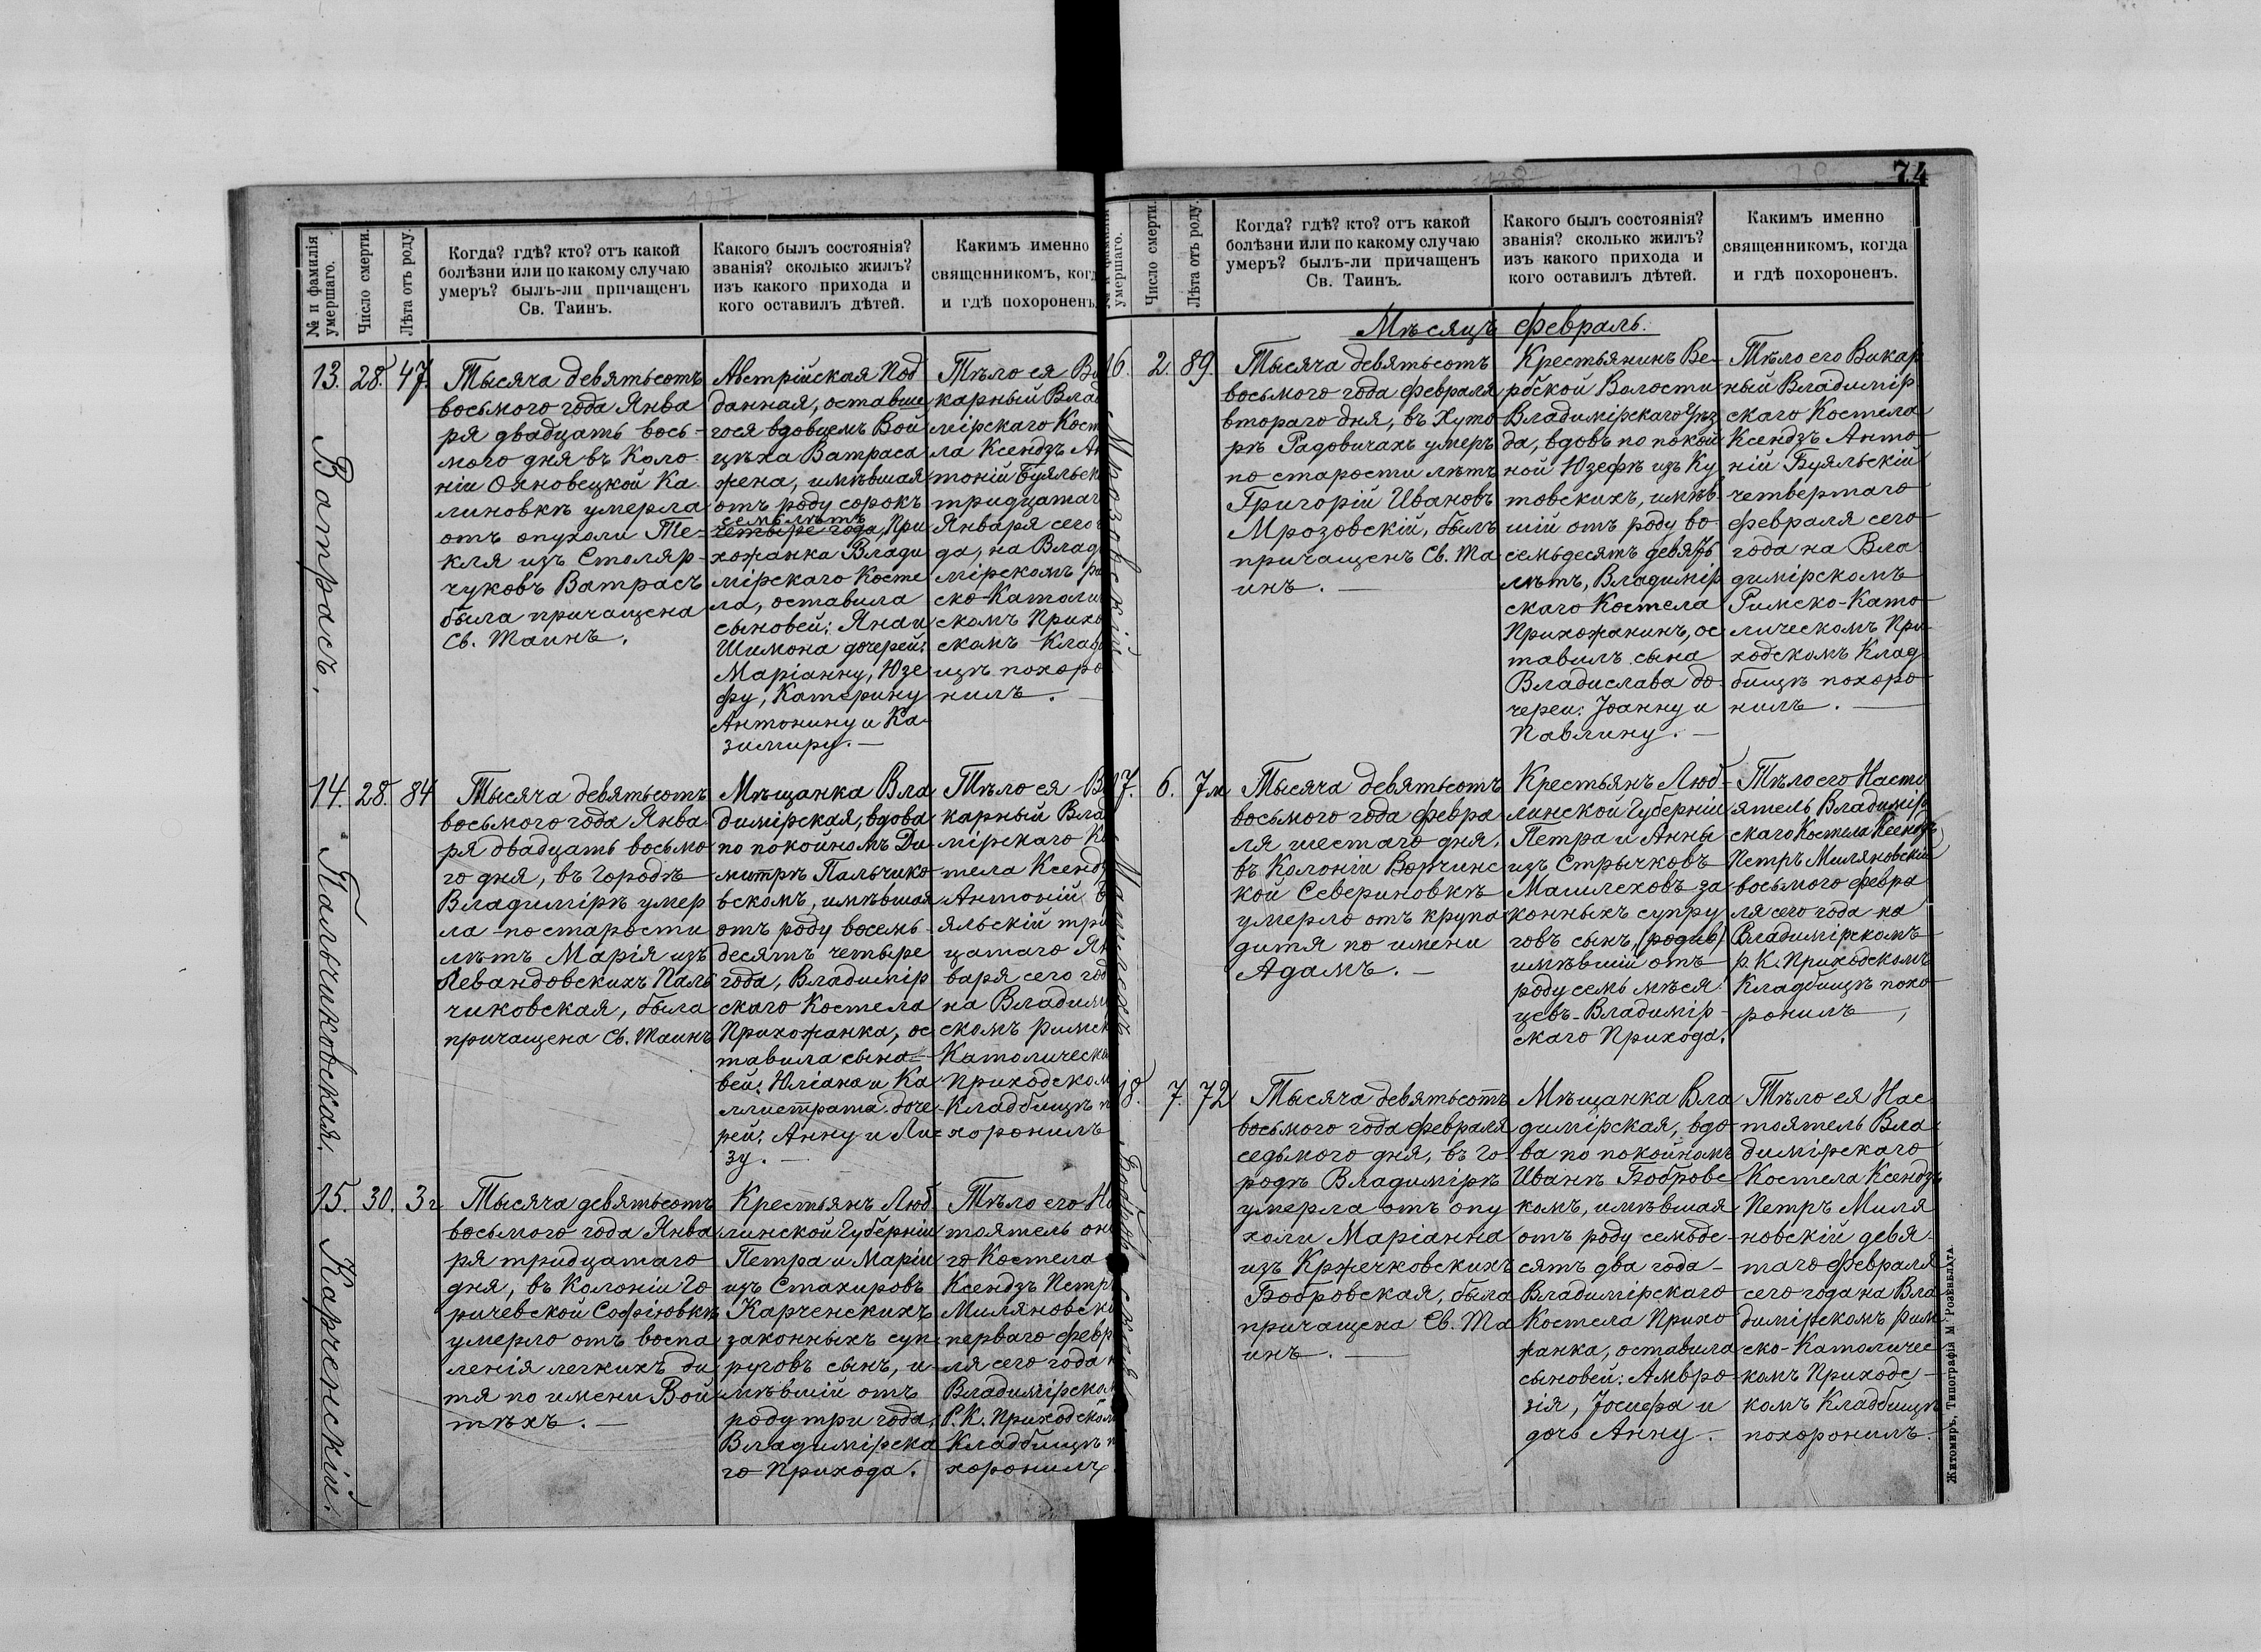 74
№ и фамилія умершаго.
Число смерти.
Лѣта отъ роду.
Когда? гдѣ? кто? отъ какой
болѣзни или по какому случаю
умеръ? былъ-ли причащенъ
Св. Таинъ.
Какого былъ состоянія?
званія? сколько жилъ?
изъ какого прихода и
кого оставилъ дѣтей.
Какимъ именно
священникомъ, когд
и гдѣ похороненъ.
13.
Ватрасъ.
28.
47.
Тысяча девятьсотъ
восьмого года Янва
ря двадцать вось-
мого дня въ Коло
ніи Ояновецкой Ка
линовкѣ умерла
отъ опухоли Те-
кля изъ Столяр-
чуковъ Ватрасъ
была причащена
Св. Таинъ.
Австрійская Под
данная, оставше
гося вдовцемъ Вой
цѣха Ватраса
жена, имѣвшая
отъ роду сорокъ
семь лѣтъ
четыре года, При
хожанка Влади
мірскаго Косте
ла, оставила
сыновей: Яна и
Шимона дочерей:
Маріанну, Юзе
фу, Катерину
Антонину и Ка-
зимиру. —
Тѣло ея Ви
карный Влад
мірскаго Кост
ла Ксендзъ Ан
тоній Буяльск
тридцатаг
Января сего
да, на Влад
мірскомъ р
ско-Католи
скомъ Прихо
скомъ Кладб
щѣ похоро
нилъ. —
14.
Пальчиковская.
28.
84
Тысяча девятьсотъ
восьмого года Янва-
ря двадцать восьмо
го дня, въ Городѣ
Владимірѣ умер
ла по старости
лѣтъ Марія изъ
Левандовскихъ Паль
чиковская, была
причащена Св. Таинъ
Мѣщанка Вла
димірская, вдова
по покойномъ Ди
митрѣ Пальчико
вскомъ, имѣвшая
отъ роду восемь-
десятъ четыре
года, Владимір
скаго Костела
Прихожанка, ос
тавила сына-
вей: Юліана и Ка
ллистрата доче
рей: Анну и Ли-
зу. —
Тѣло ея Ви
карный Влад
мірскаго Ко
тела Ксендз
Антоній Б
яльскій три
цатаго Ян
варя сего год
на Владими
скомъ Римск
Католическо
Приходском
Кладбищѣ п
хоронилъ
15.
Карченскій.
30.
3 г
Тысяча девятьсотъ
восьмого года Янва
ря тридцатаго
дня, въ Колоніи Го
ричевской Софіювкѣ
умерло отъ воспа
ленія легкихъ ди
тя по имени Вой
тѣхъ. —
Крестьянъ Люб
линской Губерніи
Петра и Маріи
изъ Стахировъ
Карченскихъ
законныхъ суп
руговъ сынъ, и-
мѣвшій отъ
роду три года,
Владимірска
го Прихода.
Тѣло его На
тоятель он
го Костела
Ксендзъ Петр
Миляновскі
перваго февр
ля сего года н
Владимірском
Р. К. Приходском
Кладбищѣ п
хоронилъ
умершаго.
Число смерти.
Лѣта отъ роду.
Когда? гдѣ? кто? отъ какой
болѣзни или по какому случаю
умеръ? былъ-ли причащенъ
Св. Таинъ.
Какого былъ состоянія?
званія? сколько жилъ?
изъ какого прихода и
кого оставилъ дѣтей.
Какимъ именно
священникомъ, когда
и гдѣ похороненъ.
Мѣсяцъ февраль.
16.
Мрозовскій
2.
89.
Тысяча девятьсотъ
восьмого года февраля
второго дня, въ Хуто
рѣ Радовичахъ умеръ
по старости лѣтъ
Григорій Ивановъ
Мрозовскій, былъ
причащенъ Св. Та
инъ. —
Крестьянинъ Ве-
рбской Волости
Владимірскаго Уѣз
да, вдовъ по покой
ной Юзефѣ изъ Ку
товскихъ, имѣв
шій отъ роду во-
семьдесятъ девять
лѣтъ, Владимір
скаго Костела
Прихожанинъ, ос
тавилъ сына
Владислава до-
череи: Іоанну и
Павлину. —
Тѣло его Викар
ный Владимір
скаго Костела
Ксендзъ Анто-
ній Буяльскій
четвертаго
февраля сего
года на Вла
димірскомъ
Римско-Като
лическомъ При-
ходскомъ Клад
бищѣ похоро
нилъ. —
17.
Машлехъ
6.
7 м
Тысяча девятьсотъ
восьмого года февра
ля шестаго дня,
въ Колоніи Ворчинс
кой Севериновкѣ
умерло отъ крупа
дитя по имени
Адамъ. —
Крестьянъ Люб-
линской Губерніи
Петра и Анны
изъ Стрычковъ
Машлеховъ за
конныхъ супру
говъ сынъ, (родив)
имѣвшій отъ
роду семь мѣся
цевъ- Владимір-
скаго Прихода.
Тѣло его Насто
ятель Владимір
скаго Костела Ксендзъ
Петръ Миляновскій
восьмого февра
ля сего года на
Владимірскомъ
р. К. Приходскомъ
Кладбищѣ похо
ронилъ,
18.
Бобровская
7.
72
Тысяча девятьсотъ
восьмого года февраля
седьмого дня, въ Го
родѣ Владимірѣ
умерла отъ опу
холи Маріанна
изъ Кржечковскихъ
Бобровская, была
причащена Св. Та
инъ. —
Мѣщанка Вла
димірская, вдо
ва по покойномъ
Иванѣ Бобровс
комъ, имѣвшая
отъ роду семьде-
сятъ два года-
Владимірскаго
Костела Прихо
жанка, оставила
сыновей: Амвро
зія, Іосифа и
дочь Анну.
Тѣло ея Нас
тоятель Вла
димірскаго
Костела Ксендзъ
Петръ Миля
новскій девя
таго февраля
сего года на Вла
димірскомъ Рим
ско-Католичес
комъ Приходс-
комъ Кладбищѣ
похоронилъ.
Житомиръ, Типографія М. Розенблата